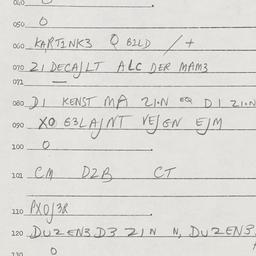 040
050 O
060 KARTINK3 Q BILD / +
070 21 DECAJLT ALC DER MAM3
071 —
080 D1 KENST MA 21·N EQ D1 21·N
090 XO E3LAJNT VEJEN EJM
100 O
101 CM D2B CT
110 PXOJ3R
120 DU2EN3 D3 21N N, DU2EN3
130 O